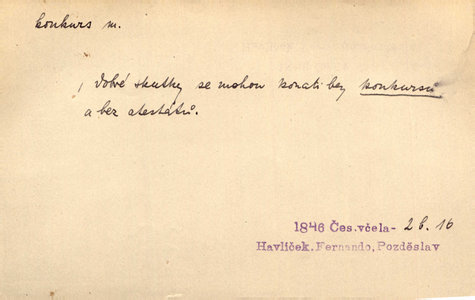 konkurs m.
, dobré skutky se mohou konati bez konkursů
a bez atestátů.
1846 Čes.včela- 2 b. 16
Havlíček. Fernando, Pozděslav